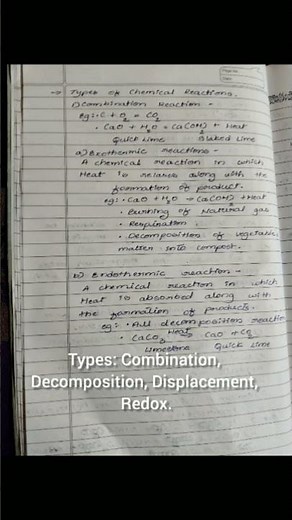 → Types of Chemical Reactions.
1) Combination Reaction -
eg:- C + O2 = CO2
• CaO + H2O = Ca(OH)2 + Heat
Quick Lime Slaked Lime
a) Exothermic reactions -
A chemical reaction in which
Heat is relases along with the
formation of product.
eg:- CaO + H2O → Ca(OH)2 + Heat
• Burning of Natural gas
• Respiration.
• Decomposition of vegetable
matter into compost.
b) Endothermic reaction -
A chemical reaction in which
Heat is absorbed along with
the formation of products.
eg: • All decomposition reactio
• CaCO3 Heat CaO + CO2
Limestone Quick Lime
Types: Combination,
Decomposition, Displacement,
Redox.